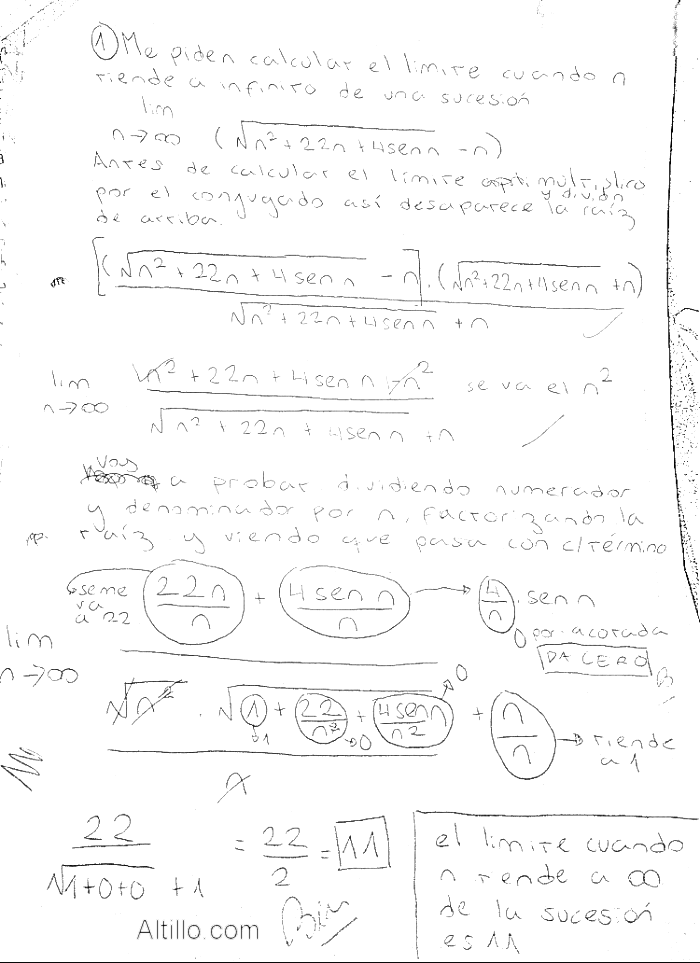 ① Me piden calcular el limite cuando n
tiende a infinito de una sucesión
lim
n→∞ (√n²+22n+4senn - n)
Antes de calcular el límite multiplico
y divido
por el conjugado así desaparece la raíz
de arriba.
[(√n²+22n+4senn - n] . (√n²+22n+4senn + n)
√n²+22n+4senn + n
lim n²+22n+4senn - n² se va el n²
n→∞ √n²+22n+4senn + n
Voy
a probar dividiendo numerador
y denominador por n, factorizando la
raíz y viendo que pasa con c/término
se me va a 22 22n/n + 4senn/n → 4/n . senn
0 por acotada
DA CERO B
lim
n→∞
√n² . √1 + 22/n² + 4senn/n² + n/n → tiende a 1
→1 →0 →0
n
22 = 22 = 11
√1+0+0 + 1 2
Bien
el limite cuando
n tende a ∞
de la sucesión
es 11
Altillo.com